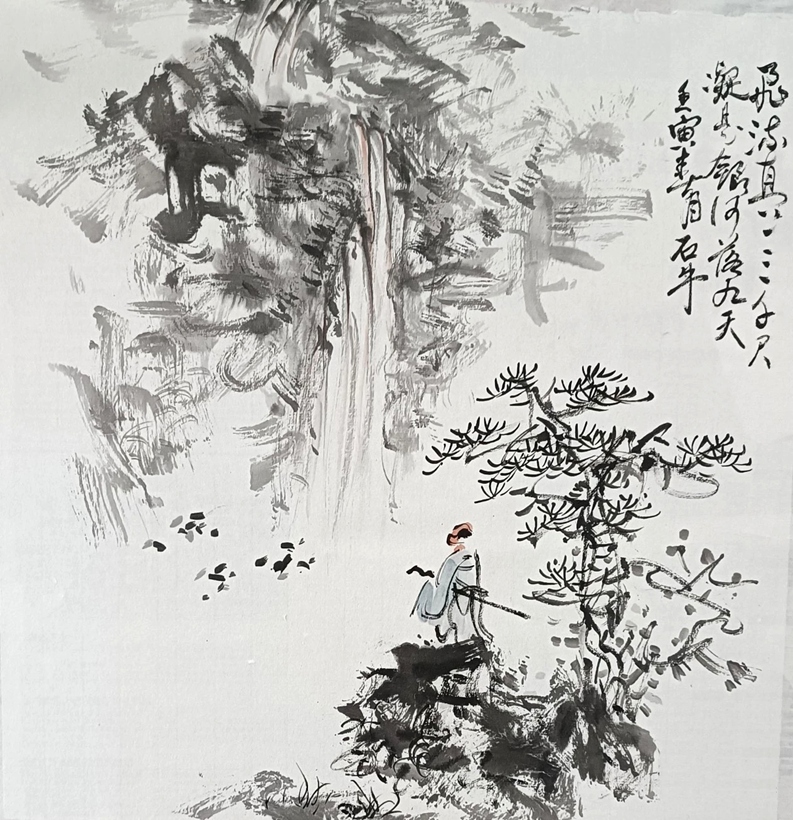 飛流直下三千尺
凝是銀河落九天
壬寅春月石牛